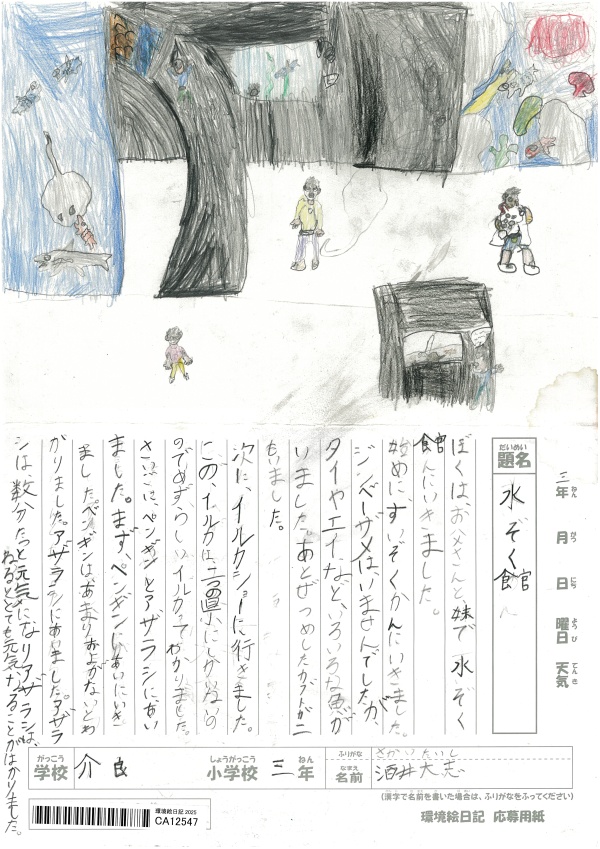 三年 月 日 曜日 天気
ねん がつ にち ようび てんき
だいめい
題名
水ぞく館
ぼくは、お父さんと、妹で水ぞく
館んにいきました。
始めに、すいぞくかんにいきました。
ジンベーザメはいませんでしたが、
タイヤエイなど、いろいろな魚が
いました。あとぜつめしたカブトがニ
もいました。
次に、イルカショーに行きました。
この、イルカは、二つの県にしかいない
のでめずらしいイルカってわかりました。
さいごは、ペンギンとアザラシにあい
ました。まず、ペンギンにあいにいき
ました。ペンギンは、あまりおよがないとわ
かりました。アザラシにあいました。アザラ
シは、数分たつと元気になりアザラシは、
ねるととても元気になることがはかりました。
がっこう
学校
介良
しょうがっこう
小学校
三
ねん
年
ふりがな
さかいたいし
なまえ
名前
酒井大志
(漢字で名前を書いた場合は、ふりがなをふってください)
環境絵日記 2025
CA12547
環境絵日記 応募用紙